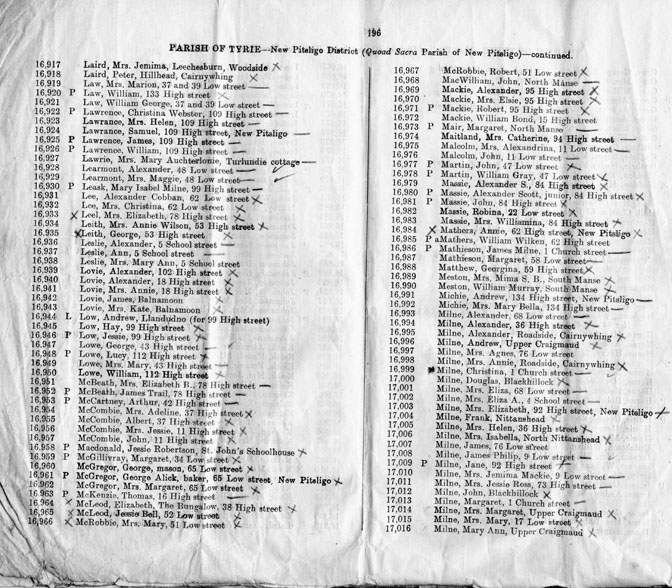 196
PARISH OF TYRIE—New Pitsligo District (Quoad Sacra Parish of New Pitsligo)—continued.
16,917 Laird, Mrs. Jemima, Leechesburn, Woodside
16,918 Laird, Peter, Hillhead, Cairnywhing
16,919 Law, Mrs. Marion, 37 and 39 Low street
16,920 P Law, William, 133 High street
16,921 Law, William George, 37 and 39 Low street
16,922 P Lawrence, Christina Webster, 109 High street
16,923 Lawrance, Mrs. Helen, 109 High street
16,924 Lawrance, Samuel, 109 High street, New Pitsligo
16,925 P Lawrence, James, 109 High street
16,926 P Lawrence, William, 109 High street
16,927 Lawrie, Mrs. Mary Auchterlonie, Turlundie cottage
16,928 Learmont, Alexander, 48 Low street
16,929 Learmont, Mrs. Maggie, 48 Low street
16,930 P Leask, Mary Isabel Milne, 99 High street
16,931 Lee, Alexander Cobban, 62 Low street
16,932 Lee, Mrs. Christina, 62 Low street
16,933 Leel, Mrs. Elizabeth, 78 High street
16,934 Leith, Mrs. Annie Wilson, 53 High street
16,935 Leith, George, 53 High street
16,936 Leslie, Alexander, 5 School street
16,937 Leslie, Ann, 5 School street
16,938 Leslie, Mrs. Mary Ann, 5 School street
16,939 Lovie, Alexander, 102 High street
16,940 Lovie, Alexander, 18 High street
16,941 Lovie, Mrs. Annie, 18 High street
16,942 Lovie, James, Balnamoon
16,943 Lovie, Mrs. Kate, Balnamoon
16,944 L Low, Andrew, Llandudno (for 99 High street)
16,945 Low, Hay, 99 High street
16,946 P Low, Jessie, 99 High street
16,947 Lowe, George, 43 High street
16,948 P Lowe, Lucy, 112 High street
16,949 Lowe, Mrs. Mary, 43 High street
16,950 Lowe, William, 112 High street
16,951 McBeath, Mrs. Elizabeth B., 78 High street
16,952 P McBeath, James Trail, 78 High street
16,953 P McCartney, Arthur, 42 High street
16,954 McCombie, Mrs. Adeline, 37 High street
16,955 McCombie, Albert, 37 High street
16,956 McCombie, Mrs. Jessie, 11 High street
16,957 McCombie, John, 11 High street
16,958 P Macdonald, Jessie Robertson, St. John's Schoolhouse
16,959 P McGillivray, Margaret, 34 Low street
16,960 McGregor, George, mason, 65 Low street
16,961 P McGregor, George Alick, baker, 65 Low street, New Pitsligo
16,962 McGregor, Mrs. Margaret, 65 Low street
16,963 P McKenzie, Thomas, 16 High street
16,964 McLeod, Elizabeth, The Bungalow, 38 High street
16,965 McLeod, Jessie Bell, 52 Low street
16,966 McRobbie, Mrs. Mary, 51 Low street
16,967 McRobbie, Robert, 51 Low street
16,968 MacWilliam, John, North Manse
16,969 Mackie, Alexander, 95 High street
16,970 Mackie, Mrs. Elsie, 95 High street
16,971 P Mackie, Robert, 95 High street
16,972 Mackie, William Bond, 15 High street
16,973 P Mair, Margaret, North Manse
16,974 Maitland, Mrs. Catherine, 94 High street
16,975 Malcolm, Mrs. Alexandrina, 11 Low street
16,976 Malcolm, John, 11 Low street
16,977 P Martin, John, 47 Low street
16,978 P Martin, William Gray, 47 Low street
16,979 Massie, Alexander S., 84 High street
16,980 P Massie, Alexander Scott, junior, 84 High street
16,981 P Massie, John, 84 High street
16,982 Massie, Robina, 22 Low street
16,983 Massie, Mrs. Williamina, 84 High street
16,984 Mathers, Annie, 62 High street, New Pitsligo
16,985 P a Mathers, William Wilken, 62 High street
16,986 P Mathieson, James Milne, 1 Church street
16,987 Mathieson, Margaret, 58 Low street
16,988 Matthew, Georgina, 59 High street
16,989 Meston, Mrs. Mima S. B., South Manse
16,990 Meston, William Murray, South Manse
16,991 Michie, Andrew, 134 High street, New Pitsligo
16,992 Michie, Mrs. Mary Bella, 134 High street
16,993 Milne, Alexander, 68 Low street
16,994 Milne, Alexander, 36 High street
16,995 Milne, Alexander, Roadside, Cairnywhing
16,996 Milne, Andrew, Upper Craigmaud
16,997 Milne, Mrs. Agnes, 76 Low street
16,998 Milne, Mrs. Annie, Roadside, Cairnywhing
16,999 Milne, Christina, 1 Church street
17,000 Milne, Douglas, Blackhillock
17,001 Milne, Mrs. Eliza, 68 Low street
17,002 Milne, Mrs. Eliza A., 4 School street
17,003 Milne, Mrs. Elizabeth, 92 High street, New Pitsligo
17,004 Milne, Frank, Nittanshead
17,005 Milne, Mrs. Helen, 36 High street
17,006 Milne, Mrs. Isabella, North Nittanshead
17,007 Milne, James, 76 Low street
17,008 Milne, James Philip, 9 Low street
17,009 P Milne, Jane, 92 High street
17,010 Milne, Mrs. Jemima Mackie, 9 Low street
17,011 Milne, Mrs. Jessie Ross, 73 High street
17,012 Milne, John, Blackhillock
17,013 Milne, Margaret, 1 Church street
17,014 Milne, Mrs. Margaret, Upper Craigmaud
17,015 Milne, Mrs. Mary, 17 Low street
17,016 Milne, Mary Ann, Upper Craigmaud